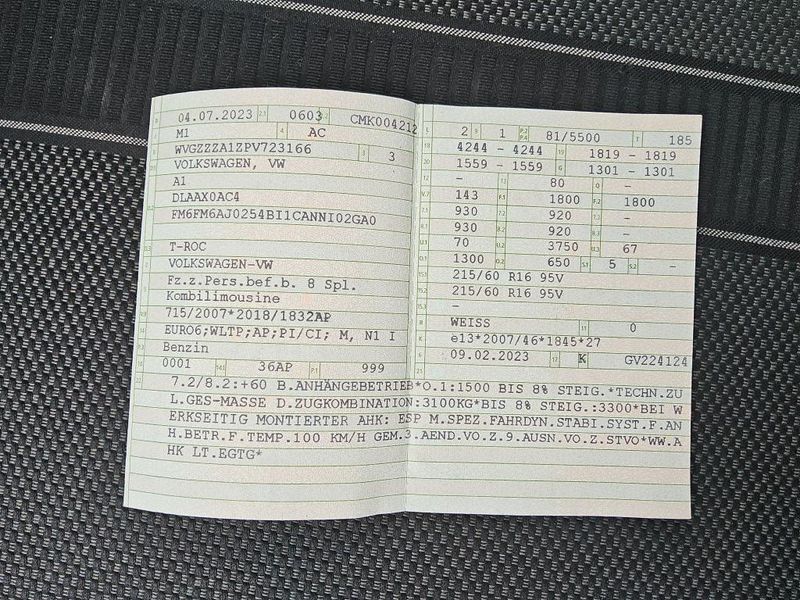 04.07.2023 0603 CMK004212
M1 AC
WVGZZZA1ZPV723166 3
VOLKSWAGEN, VW
A1
DLAAX0AC4
FM6FM6AJ0254BI1CANNI02GA0
T-ROC
VOLKSWAGEN-VW
Fz.z.Pers.bef.b. 8 Spl.
Kombilimousine
715/2007*2018/1832AP
EURO6;WLTP;AP;PI/CI; M, N1 I
Benzin
0001 36AP 999
L 2 9 1 81/5500 T 185
18 4244 - 4244 19 1819 - 1819
20 1559 - 1559 G 1301 - 1301
12 - 13 80 Q -
V.7 143 F.1 1800 F.2 1800
7.1 930 7.2 920 7.3 -
8.1 930 8.2 920 8.3 -
U.1 70 U.2 3750 U.3 67
O.1 1300 O.2 650 S.1 5 S.2 -
15.1 215/60 R16 95V
15.2 215/60 R16 95V
15.3 -
R WEISS 11 0
K e13*2007/46*1845*27
6 09.02.2023 17 K 16 GV224124
21
22 7.2/8.2:+60 B.ANHÄNGEBETRIEB*O.1:1500 BIS 8% STEIG.*TECHN.ZU
L.GES-MASSE D.ZUGKOMBINATION:3100KG*BIS 8% STEIG.:3300*BEI W
ERKSEITIG MONTIERTER AHK: ESP M.SPEZ.FAHRDYN.STABI.SYST.F.AN
H.BETR.F.TEMP.100 KM/H GEM.3.AEND.VO.Z.9.AUSN.VO.Z.STVO*WW.A
HK LT.EGTG*